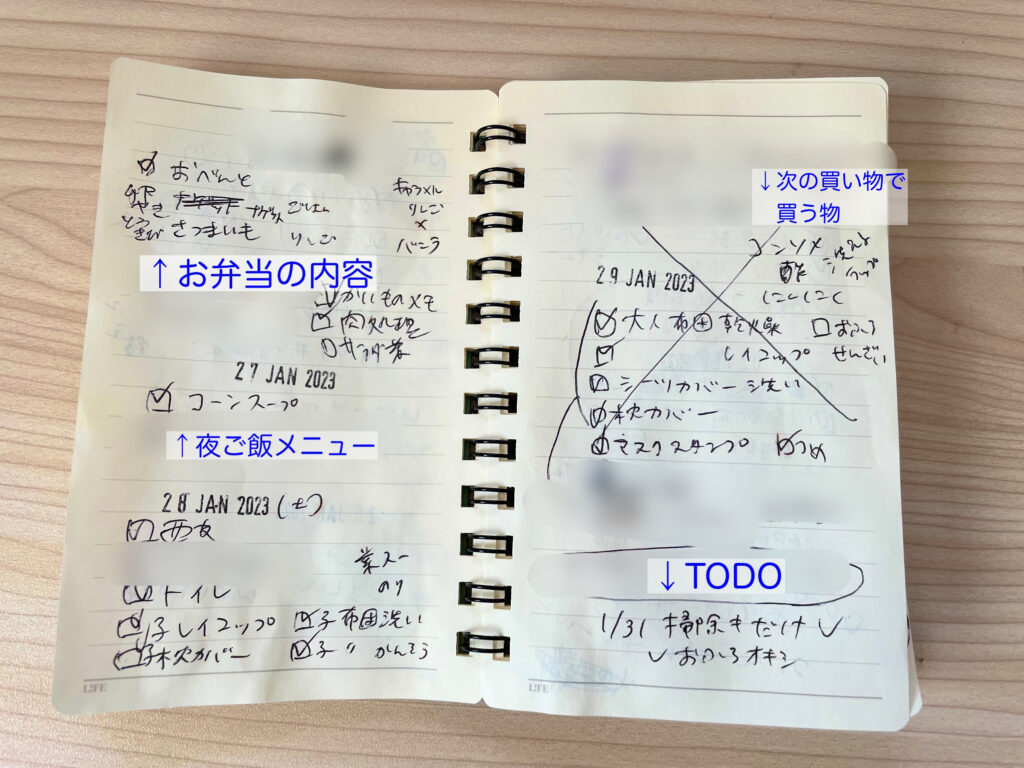 おべんと
やき ナゲット ごはん
さつまいも りんご
キャラメル
りんご
×
バニラ
↑お弁当の内容
かいものメモ
肉処理
サラダ巻
27 JAN 2023
コーンスープ
↑夜ご飯メニュー
28 JAN 2023 (土)
西友
業スー
のり
トイレ
子レイコップ 子布団洗い
子枕カバー 子〃かんそう
LIFE
↓次の買い物で
買う物
コンソメ
酢
にんにく
29 JAN 2023
大人布団乾燥 おふろ
レイコップ せんざい
シーツカバー洗い
枕カバー
マスクスタンプ つめ
↓TODO
1/31 掃除キだけ
おふろオキシ
LIFE